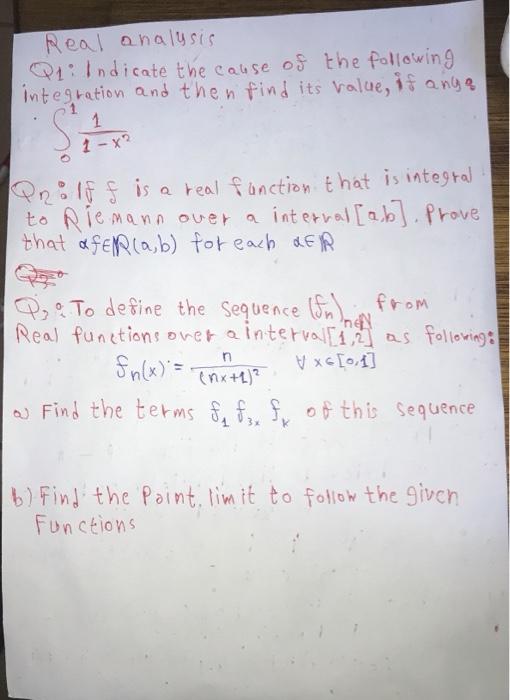 Real analysis
Q1: Indicate the cause of the following
integration and then find its value, if any:
∫₀¹ 1/(1-x²)
Q2: If f is a real function that is integral
to Riemann over a interval [a,b]. Prove
that αf∈R(a,b) for each α∈R
Q3: To define the sequence (fn)n∈N from
Real functions over a interval [1,2] as following:
fn(x) = n/(nx+1)² ∀ x∈[0,1]
a) Find the terms f₁ f₃ₓ fₖ of this sequence
b) Find the Point, limit to follow the given
Functions